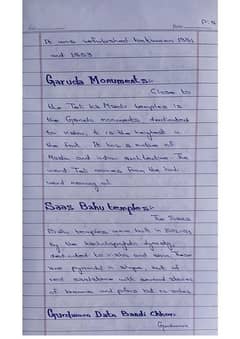 It was refurbished between 1881
and 1883
Garuda Monuments:-
Close to
the Teli ka Mandir temples is
the Garuda monuments dedicated
to vishnu, it is the heighest in
the fort. It has a mixture of
Muslim and indian architecture. The
word Teli comes from the hindi
word
Saas Bahu temples:-
The Saas
Bahu temples were built in
by the dynasty,
dedicated to vishnu and Shiva, these
are pyramidal in shape, built of
red sandstone with several stories
of beams and pillars but no arches
Gurdwara Data Bandi Chhor:-
Gurdwara